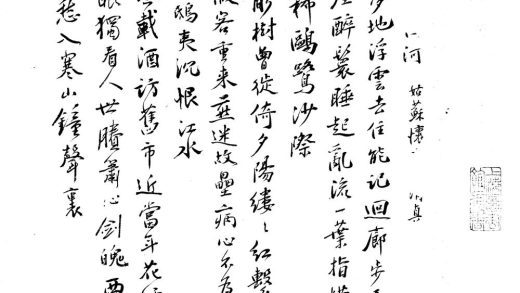 河 姑蘇懷 真
地浮雲去住能記迴廊步
醉鬟睡起亂流一葉指
稀鷗鷺沙際
彫樹曾從倚夕陽縷〻紅繫
客重來燕迷故壘病心不為
鴟夷沉恨江水
載酒訪舊市近當年花
眼獨看人世賸簫心劍魄
愁入寒山鐘聲裏